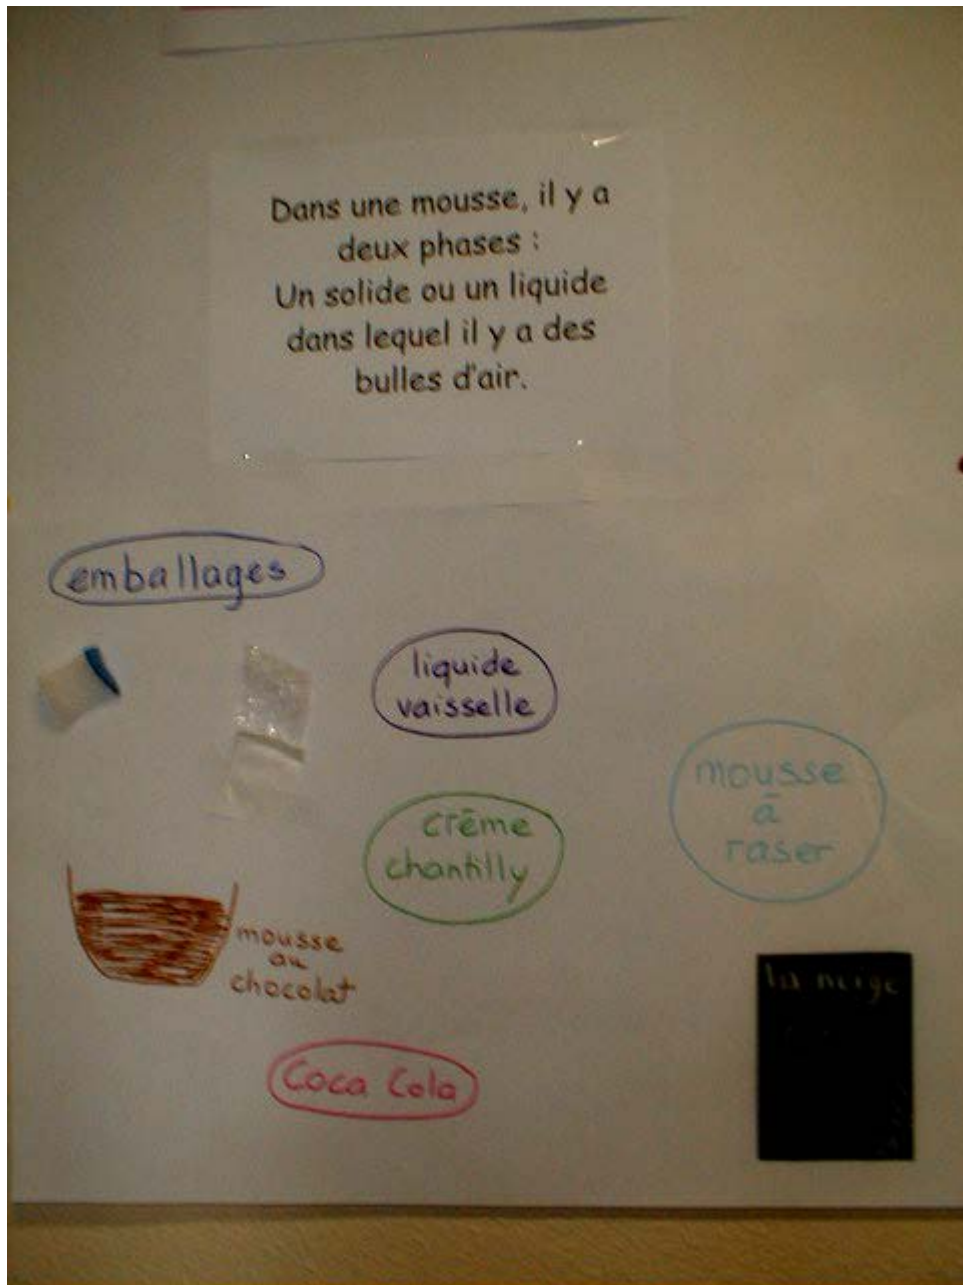 Dans une mousse, il y a
deux phases :
Un solide ou un liquide
dans lequel il y a des
bulles d'air.
emballages
liquide
vaisselle
mousse
à
raser
crème
chantilly
mousse
au
chocolat
la neige
Coca Cola